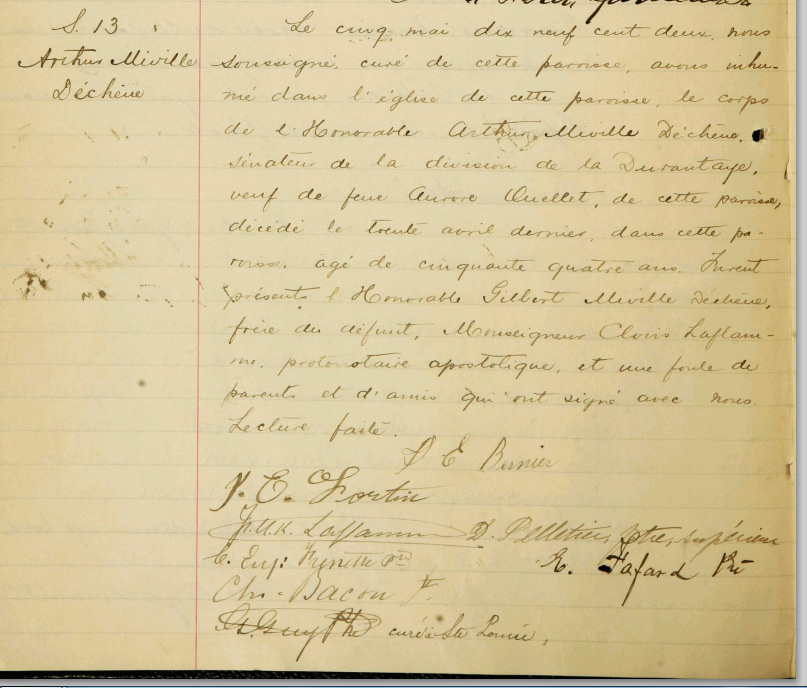 S. 13
Arthur Miville
Déchène
Le cinq mai dix neuf cent deux, nous
soussigné, curé de cette paroisse, avons inhu-
mé dans l'église de cette paroisse, le corps
de l'Honorable Arthur Miville Déchène,
sénateur de la division de la Durantaye,
veuf de feue Aurore Ouellet, de cette paroisse,
décédé le trente avril dernier, dans cette pa-
roisse, agé de cinquante quatre ans. Furent
présents l'Honorable Gilbert Miville Déchène,
frère du défunt, Monseigneur Clovis Laflam-
me, protonotaire apostolique, et une foule de
parents et d'amis qui ont signé avec nous.
Lecture faite.
D E Bernier
J. E. Fortin
J. C. K. Laflamme D. Pelletier, Ptre, supérieur
C. Eug: R. Fafard Ptr
Chs. Bacon
curé Ste Louise,